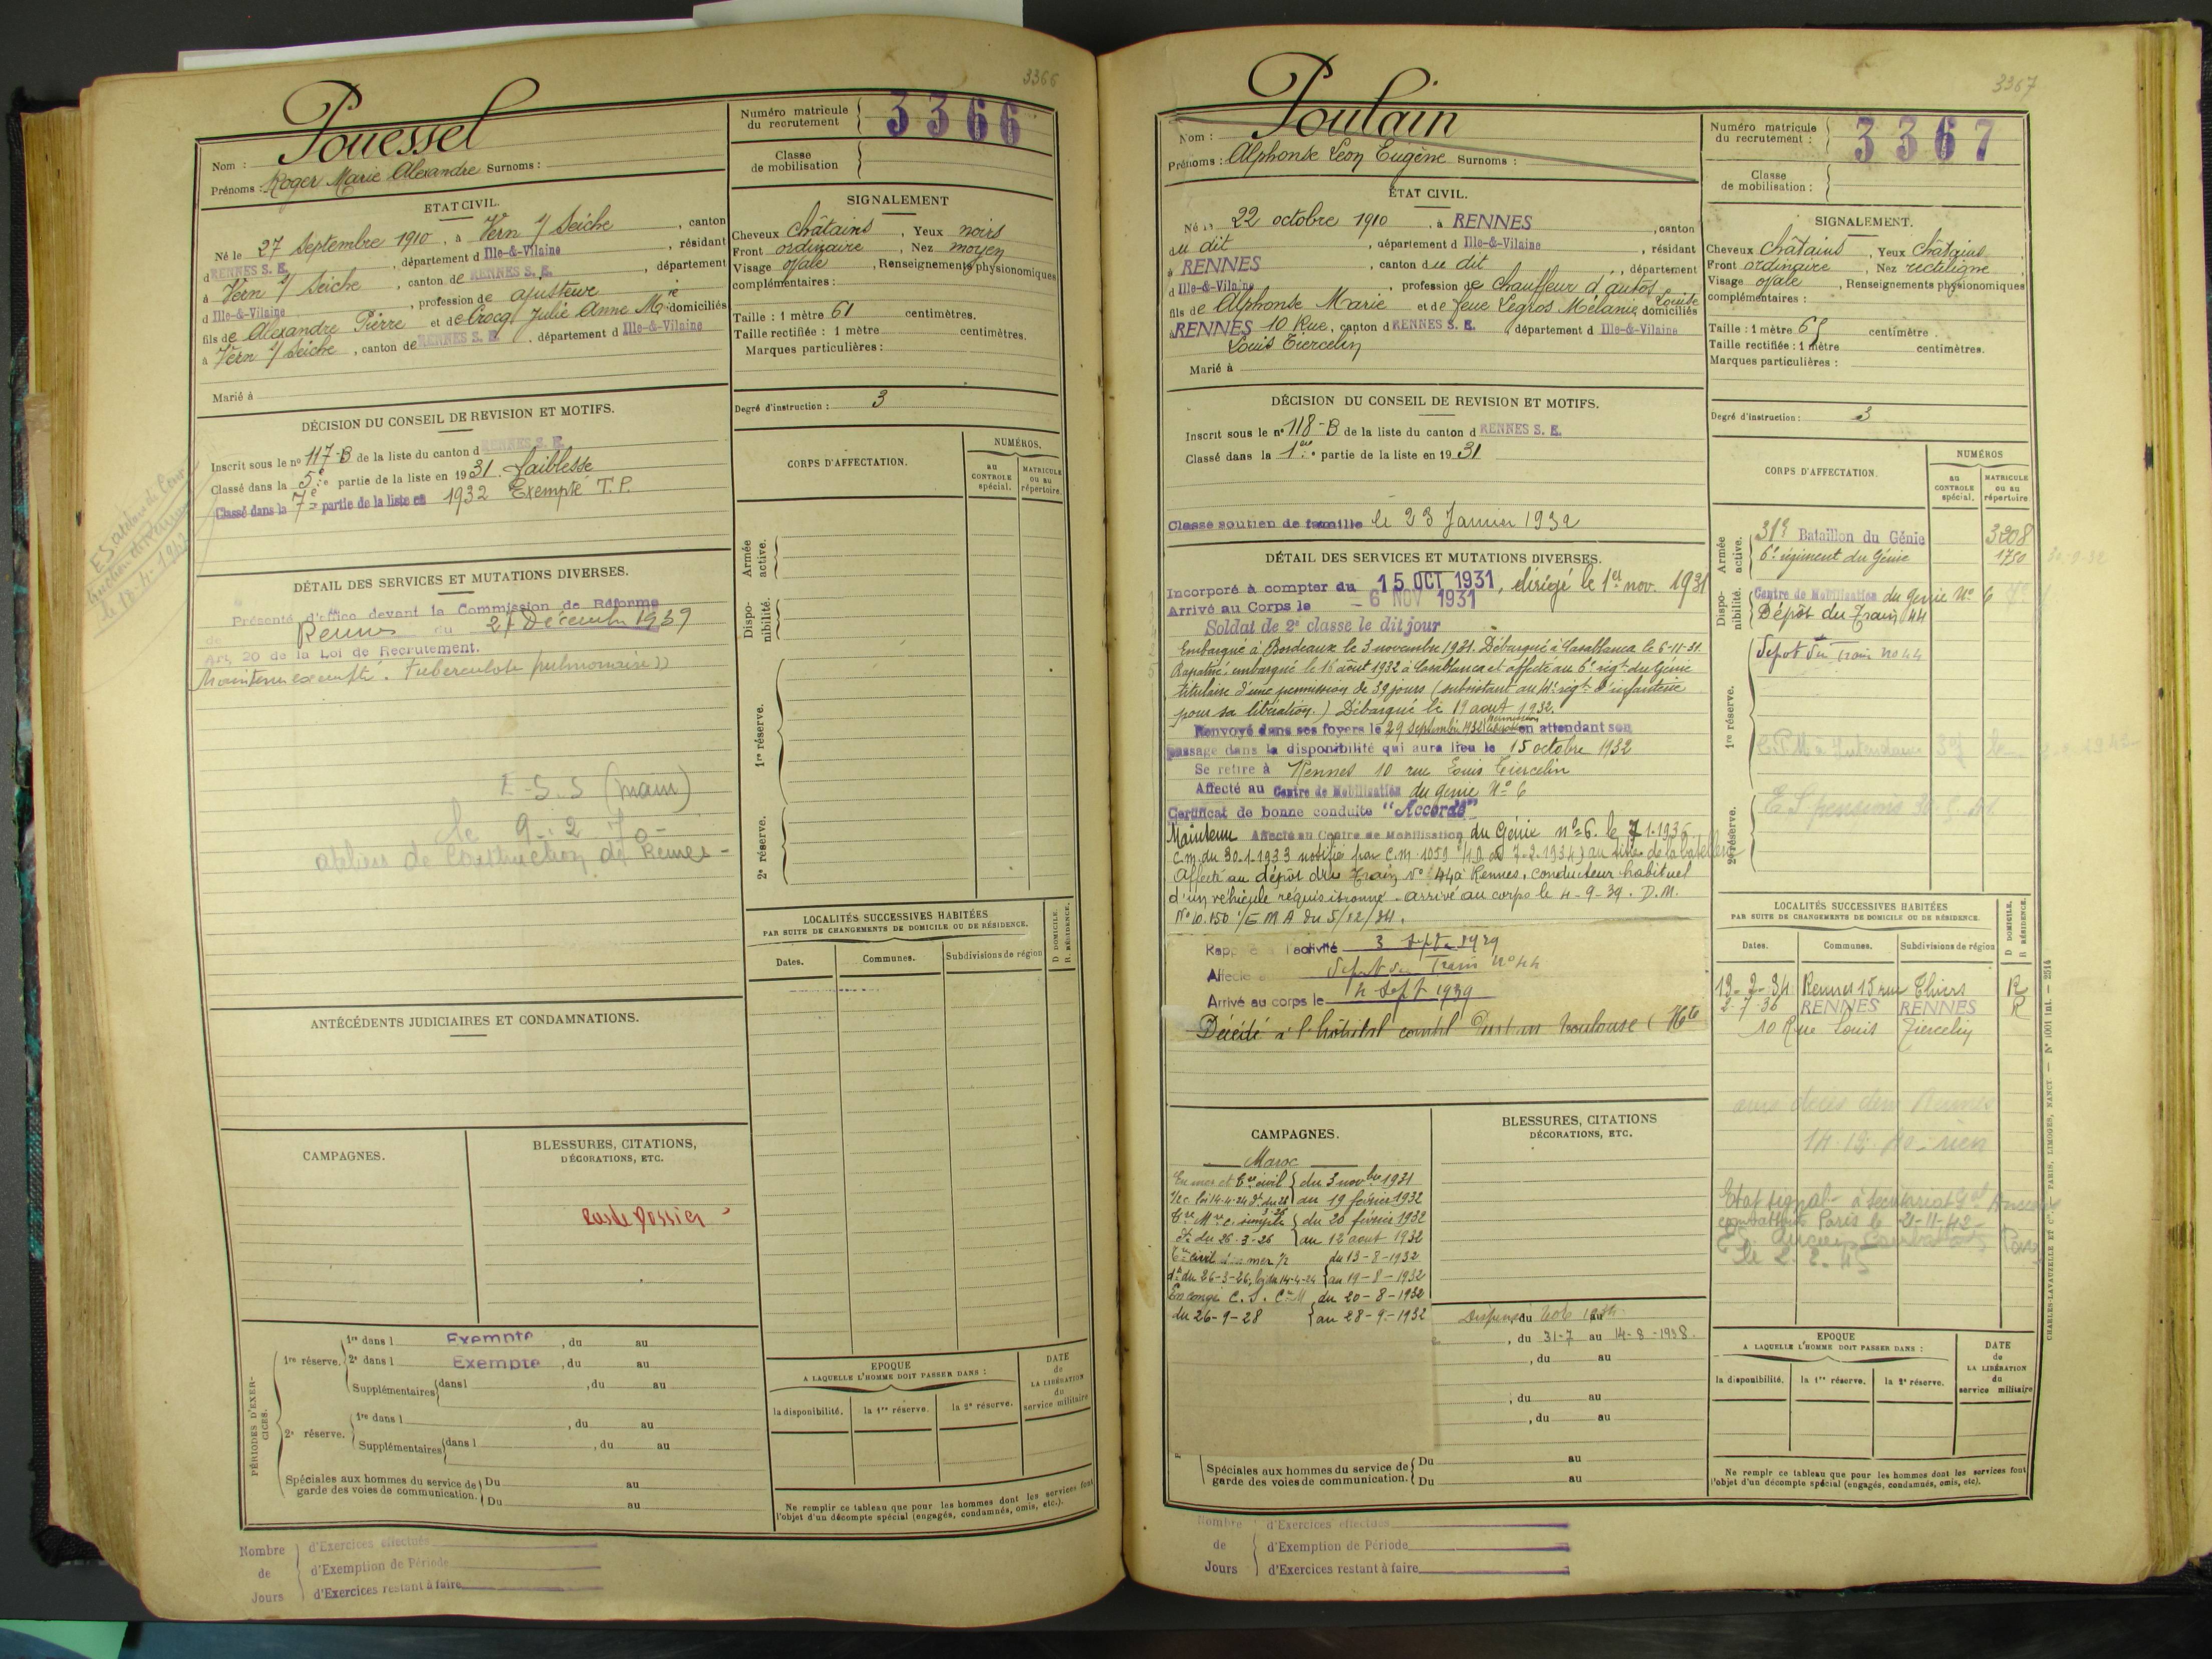 3366
Pouessel
Nom :
Prénoms : Roger Marie Alexandre Surnoms :
Numéro matricule du recrutement 3366
Classe de mobilisation
ETAT CIVIL.
Né le 27 Septembre 1910, à Vern s/ Seiche, canton
d RENNES S. E., département d Ille-&-Vilaine, résidant
à Vern s/ Seiche, canton de RENNES S. E., département
d Ille-&-Vilaine, profession de ajusteur
fils de Alexandre Pierre et de Crocq Julie Anne Mie domiciliés
à Vern s/ Seiche, canton de RENNES S. E., département d Ille-&-Vilaine
Marié à
SIGNALEMENT
Cheveux châtains, Yeux noirs
Front ordinaire, Nez moyen
Visage ovale, Renseignements physionomiques
complémentaires :
Taille : 1 mètre 61 centimètres.
Taille rectifiée : 1 mètre centimètres.
Marques particulières :
Degré d'instruction : 3
DÉCISION DU CONSEIL DE REVISION ET MOTIFS.
Inscrit sous le no 117-B de la liste du canton d RENNES S. E.
Classé dans la 5e partie de la liste en 1931. faiblesse
Classé dans la 7e partie de la liste en 1932 Exempté T.P.
le 18-4-1942
DÉTAIL DES SERVICES ET MUTATIONS DIVERSES.
Présenté d'office devant la Commission de Réforme
de Rennes du 27 Décembre 1939
Art. 20 de la Loi de Recrutement.
Maintenu exempté. tuberculose pulmonaire
E-S-S (mam)
le 9-2 70-
ateliers de Construction de Rennes -
CORPS D'AFFECTATION.
NUMÉROS.
au CONTROLE spécial.
MATRICULE ou au répertoire.
Armée active.
Disponibilité.
1re réserve.
2e réserve.
LOCALITÉS SUCCESSIVES HABITÉES
PAR SUITE DE CHANGEMENTS DE DOMICILE OU DE RÉSIDENCE.
D DOMICILE.
R RÉSIDENCE.
Dates. Communes. Subdivisions de région
ANTÉCÉDENTS JUDICIAIRES ET CONDAMNATIONS.
CAMPAGNES.
BLESSURES, CITATIONS,
DÉCORATIONS, ETC.
PÉRIODES D'EXERCICES.
1re réserve. 1re dans l Exempté, du au
2e dans l Exempté, du au
Supplémentaires dans l, du au
2e réserve. 1re dans l, du au
Supplémentaires dans l, du au
Spéciales aux hommes du service de garde des voies de communication. Du au
Du au
EPOQUE
A LAQUELLE L'HOMME DOIT PASSER DANS :
la disponibilité. la 1re réserve. la 2e réserve.
DATE de LA LIBÉRATION du service militaire
Ne remplir ce tableau que pour les hommes dont les services font
l'objet d'un décompte spécial (engagés, condamnés, omis, etc.).
Nombre de Jours
d'Exercices effectués
d'Exemption de Période
d'Exercices restant à faire
3367
Poulain
Nom :
Prénoms : Alphonse Léon Eugène Surnoms :
Numéro matricule du recrutement : 3367
Classe de mobilisation :
ÉTAT CIVIL.
Né le 22 octobre 1910, à RENNES, canton
du dit, département d Ille-&-Vilaine, résidant
à RENNES, canton du dit, département
d Ille-&-Vilaine, profession de chauffeur d'autos
fils de Alphonse Marie et de feue Legros Mélanie Louise domiciliés
à RENNES 10 Rue, canton d RENNES S. E. département d Ille-&-Vilaine
Louis Tiercelin
Marié à
SIGNALEMENT.
Cheveux châtains, Yeux châtains
Front ordinaire, Nez rectiligne
Visage ovale, Renseignements physionomiques
complémentaires :
Taille : 1 mètre 65 centimètre.
Taille rectifiée : 1 mètre centimètres.
Marques particulières :
Degré d'instruction : 3
DÉCISION DU CONSEIL DE REVISION ET MOTIFS.
Inscrit sous le no 118-B de la liste du canton d RENNES S. E.
Classé dans la 1ere partie de la liste en 1931
Classé soutien de famille le 23 Janvier 1932
DÉTAIL DES SERVICES ET MUTATIONS DIVERSES.
Incorporé à compter du 15 OCT 1931, dirigé le 1er nov. 1931
Arrivé au Corps le - 6 NOV 1931
Soldat de 2e classe le dit jour
Embarqué à Bordeaux le 3 novembre 1931. Débarqué à Casablanca le 6-11-31.
Rapatrié, embarqué le 16 août 1932 à Casablanca et affecté au 6e régt du Génie
titulaire d'une permission de 39 jours (subsistant au 41e régt d'infanterie
pour sa libération.) Débarqué le 19 août 1932.
Renvoyé dans ses foyers le 29 Septembre 1932 en attendant son
passage dans la disponibilité qui aura lieu le 15 octobre 1932
Se retire à Rennes 10 rue Louis Tiercelin
Affecté au Centre de Mobilisation du génie No 6
Certificat de bonne conduite "Accordé"
Maintenu Affecté au Centre de Mobilisation du Génie no 6. le 7.1.1936
Affecté au dépôt du Train No 44 à Rennes, conducteur habituel
d'un véhicule réquisitionné. arrivé au corps le 4-9-39. D.M.
No 10.150 /EMA du 5/12/34.
Rappelé à l'activité 3 Sept 1939
Affecté Dépôt du Train No 44
Arrivé au corps le 4 Sept 1939
Décédé à l'hôpital Toulouse (Hte
CORPS D'AFFECTATION.
NUMÉROS
au CONTROLE spécial.
MATRICULE ou au répertoire.
Armée active.
31e Bataillon du Génie 3208
6e régiment du Génie 1750
Disponibilité.
Centre de Mobilisation du Génie No 6
Dépôt du Train 44
1re réserve.
Dépôt du Train no 44
2e réserve.
LOCALITÉS SUCCESSIVES HABITÉES
PAR SUITE DE CHANGEMENTS DE DOMICILE OU DE RÉSIDENCE.
D DOMICILE.
R RÉSIDENCE.
Dates. Communes. Subdivisions de région
13-2-34 Rennes 15 rue Thiers R
2-7-36 RENNES RENNES R
10 Rue Louis Tiercelin
avis décès
14-12-40 - rien
combattants Paris le 21-11-42
CAMPAGNES.
Maroc
En mer et Gre civil du 3 novbre 1931
au 19 février 1932
du 20 février 1932
du 26-3-26 au 12 août 1932
du 13-8-1932
du 26-3-26, loi du 14-4-24 au 19-8-1932
En congé du 20-8-1932
du 26-9-28 au 28-9-1932
BLESSURES, CITATIONS
DÉCORATIONS, ETC.
du au
, du 31-7 au 14-8-1938.
, du au
, du au
, du au
Spéciales aux hommes du service de garde des voies de communication. Du au
Du au
EPOQUE
A LAQUELLE L'HOMME DOIT PASSER DANS :
la disponibilité. la 1re réserve. la 2e réserve.
DATE de LA LIBÉRATION du service militaire
Ne remplr ce tableau que pour les hommes dont les services font
l'objet d'un décompte spécial (engagés, condamnés, omis, etc).
CHARLES-LAVAUZELLE ET Cie. PARIS, LIMOGES, NANCY. — No 1001 int. — 2514
Nombre de Jours
d'Exercices effectués
d'Exemption de Période
d'Exercices restant à faire